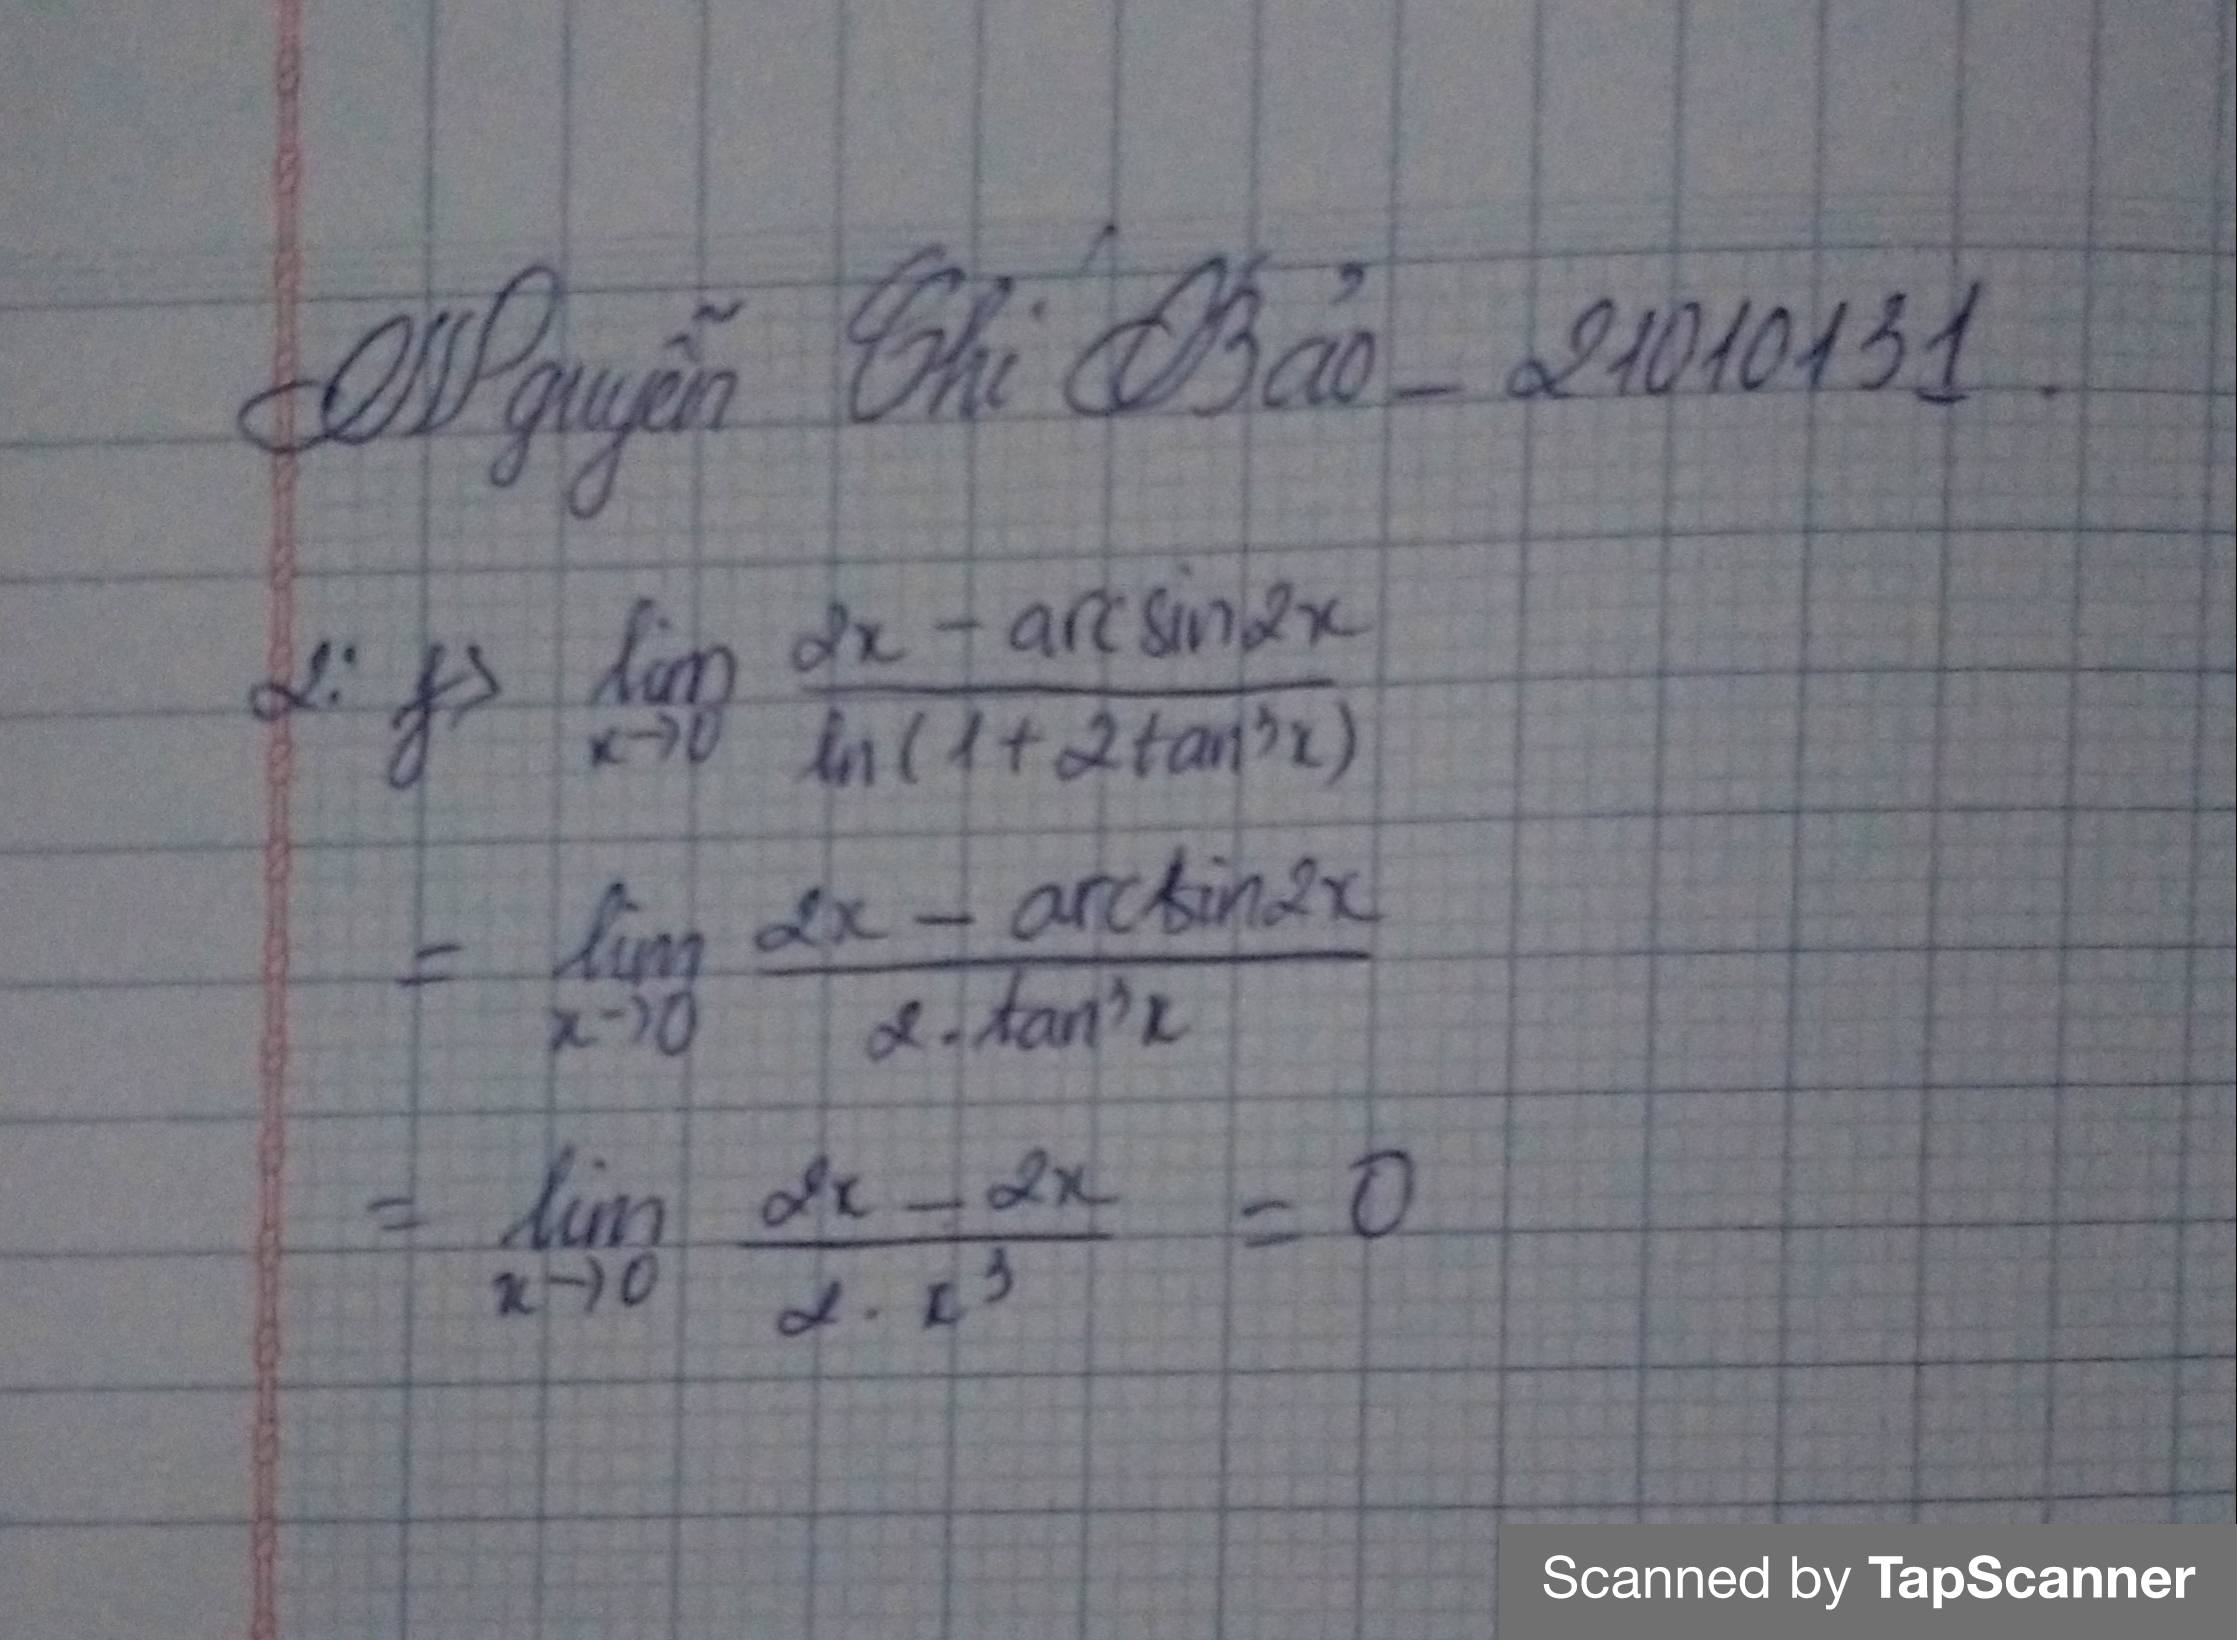 Nguyễn Chí Bảo - 21010131.
2: f> lim x→0 (2x - arcsin2x) / (ln(1+2tan³x))
= lim x→0 (2x - arcsin2x) / (2.tan³x)
= lim x→0 (2x - 2x) / (2.x³) = 0
Scanned by TapScanner